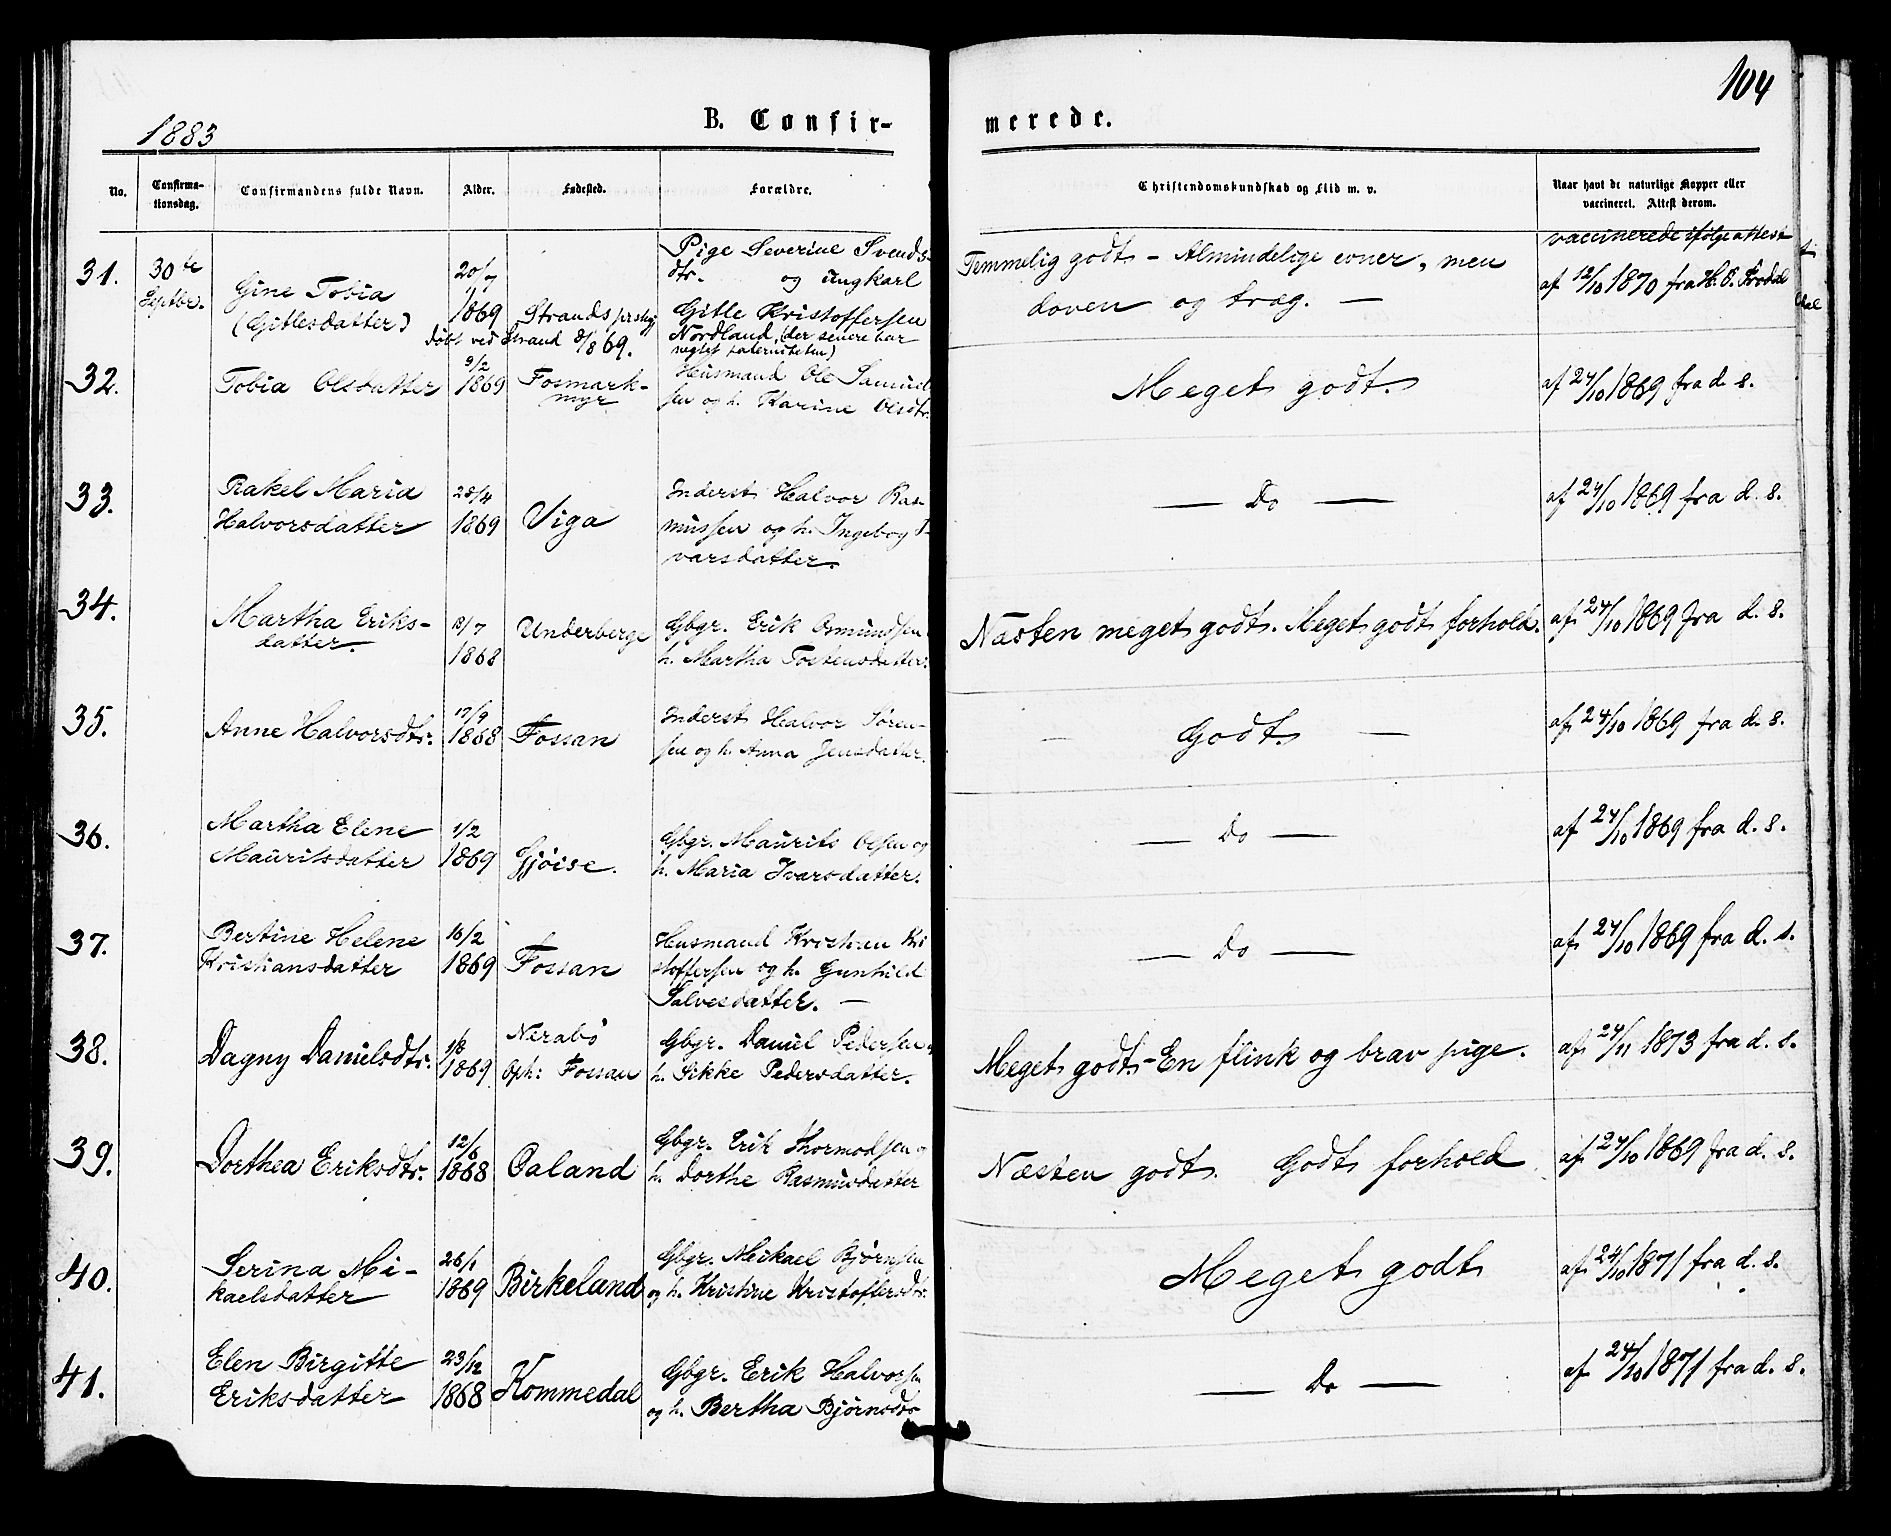 104
1883
B. Confir-
merede.
No.
Confirma-
tionsdag.
Confirmandens fulde Navn.
Alder.
Fødested.
Forældre.
Christendomskundskab og Flid m. v.
Naar havt de naturlige Kopper eller
vaccineret. Attest derom.
31. 30te Septbr.
Gine Tobia
(Gitlesdatter)
20/7
1869
Strands prstgj
døbt ved Strand 8/8 69.
Pige Severine Svends-
dtr. og ungkarl
Gitle Kristoffersen
Nordland, (der senere har
negtet paterniteten)
Temmelig godt - Almindelige evner, men
doven og træg. —
vaccinerede ifølge attest
af 12/10 1870 fra H. B.
32.
Tobia Olsdatter
9/2
1869
Fosmark-
myr
Husmand Ole Samuel-
sen og h. Karine Olsdtr.
Meget godt.
af 24/10 1869 fra d. s.
33.
Rakel Maria
Halvorsdatter
28/4
1869
Viga
Inderst Halvor Ras-
mussen og h. Ingebog I-
varsdatter.
— Do —
af 24/10 1869 fra d. s.
34.
Martha Eriks-
datter.
18/7
1868
Underberge
Gbgr. Erik Osmundsen
h. Martha Tostensdatter.
Næsten meget godt. Meget godt forhold.
af 24/10 1869 fra d. s.
35.
Anne Halvorsdtr.
17/9
1868
Fossan
Inderst Halvor Sören-
sen og h. Anna Jensdatter.
— Godt. —
af 24/10 1869 fra d. s.
36.
Martha Elene
Mauritsdatter
1/2
1869
Gjöise.
Gbgr. Maurits Olsen og
h. Maria Ivarsdatter.
— Do —
af 24/10 1869 fra d. s.
37.
Bertine Helene
Kristiansdatter
16/2
1869
Fossan
Husmand Kristian Kri
stoffersen og h. Gunhild
Salvesdatter. —
— Do —
af 24/10 1869 fra d. s.
38.
Dagny Danielsdtr.
1/3
1869
Nerabö
Oph: Fossan
Gbgr. Daniel Pedersen
h. Sikke Pedersdatter.
Meget godt - En flink og brav pige.
af 24/11 1873 fra d. s.
39.
Dorthea Eriksdtr.
12/6
1868
Oaland
Gbgr. Erik Thormodsen og
h. Dorthe Rasmusdatter
Næsten godt. Godt forhold
af 24/10 1869 fra d. s.
40.
Serina Mi-
kaelsdatter
26/1
1869
Birkeland
Gbgr. Mikael Björnsen
og h. Kristine Kristoffersdtr.
Meget godt
af 24/10 1871 fra d. s.
41.
Elen Birgitte
Eriksdatter
23/12
1868
Kommedal
Gbgr. Erik Halvorsen
og h. Bertha Björnsdtr
— Do —
af 24/10 1871 fra d. s.